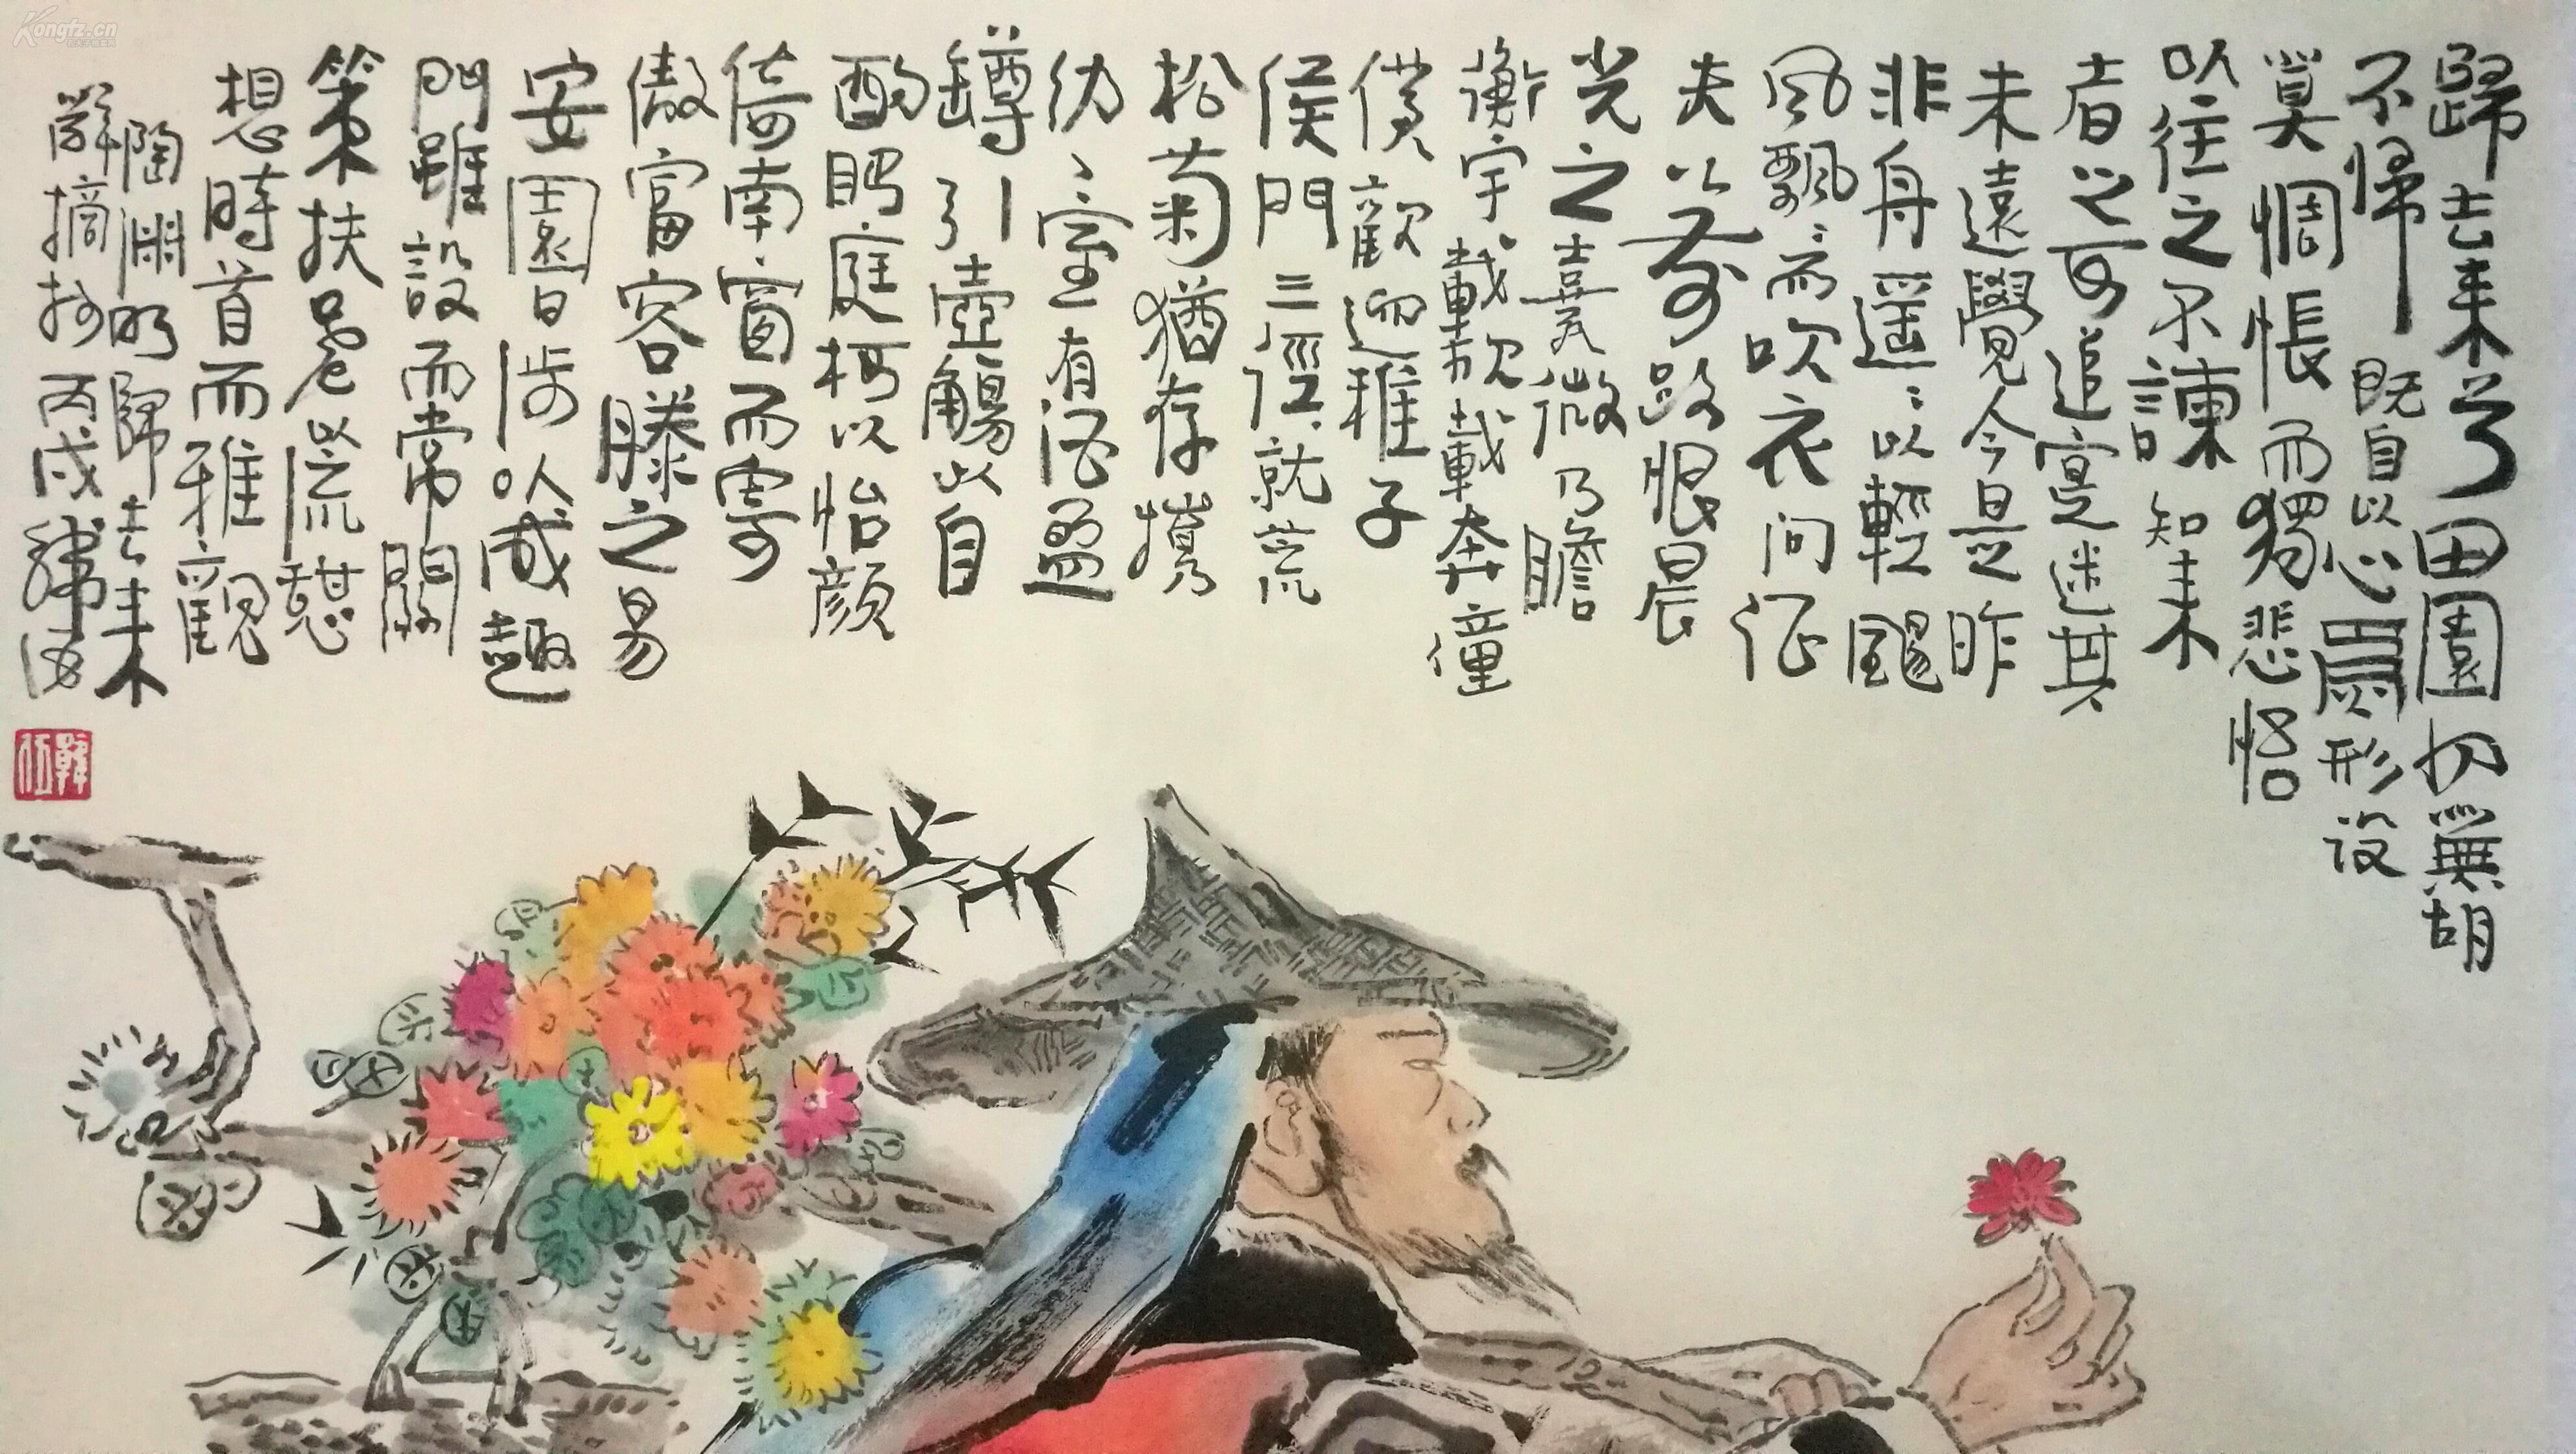 歸去来兮田園怀無胡
不帰既自以心爲形设
奚惆悵而獨悲悟
以往之不諫知来
者之可追寔迷其
未遠覺今是昨
非舟遥:以輕颺
風飄:而吹衣问征
夫以前路恨晨
光之熹微乃瞻
衡宇載欣載奔僮
僕歡迎稚子
候門三徑就荒
松菊猶存攜
幼:室有酒盈
罇引壺觴以自
酌眄庭柯以怡顔
倚南窗而寄
傲富容膝之易
安園日涉以成趣
門雖設而常關
策扶老以流憩
想時首而雅觀
陶渊明歸去来
辭摘抄丙戌
韓伍
Kongfz.cn